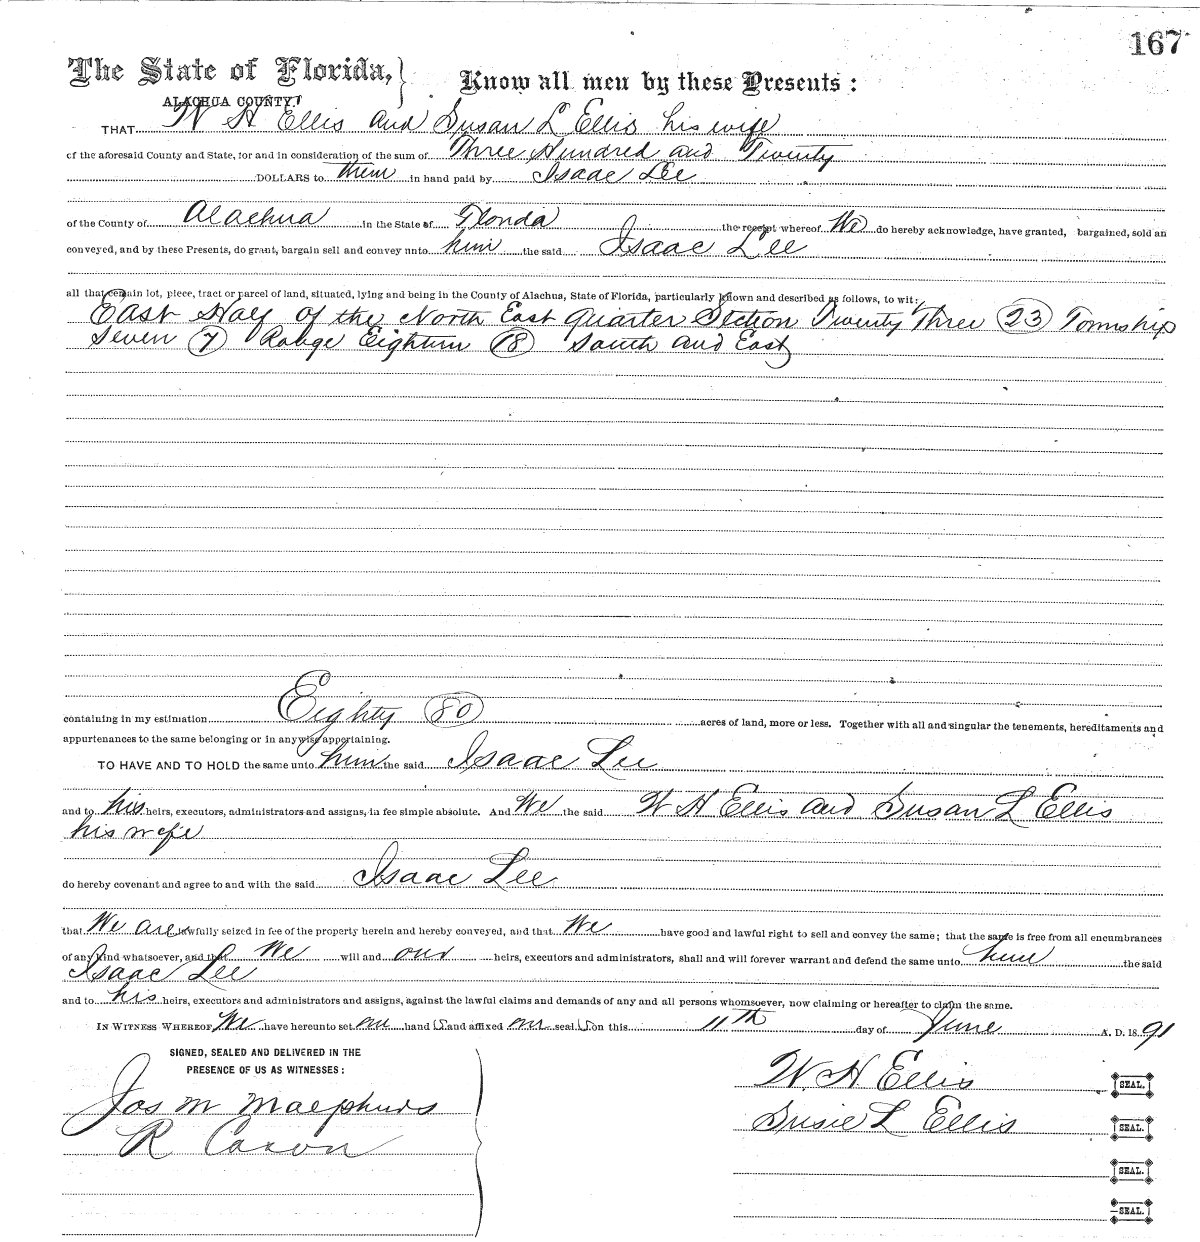 167
The State of Florida, } Know all men by these Presents :
ALACHUA COUNTY.
THAT W H Ellis and Susan L Ellis his wife
of the aforesaid County and State, for and in consideration of the sum of Three Hundred and Twenty
DOLLARS to them in hand paid by Isaac Lee
of the County of Alachua in the State of Florida the receipt whereof We do hereby acknowledge, have granted, bargained, sold an
conveyed, and by these Presents, do grant, bargain sell and convey unto him the said Isaac Lee
all that certain lot, piece, tract or parcel of land, situated, lying and being in the County of Alachua, State of Florida, particularly known and described as follows, to wit:
East Half of the North East Quarter Section Twenty Three (23) Township
Seven (7) Range Eighteen (18) South and East
containing in my estimation Eighty (80) acres of land, more or less. Together with all and singular the tenements, hereditaments and
appurtenances to the same belonging or in anywise appertaining.
TO HAVE AND TO HOLD the same unto him the said Isaac Lee
and to his heirs, executors, administrators and assigns, in fee simple absolute. And We the said W H Ellis and Susan L Ellis
his wife
do hereby covenant and agree to and with the said Isaac Lee
that We are lawfully seized in fee of the property herein and hereby conveyed, and that We have good and lawful right to sell and convey the same; that the same is free from all encumbrances
of any kind whatsoever, and that We will and our heirs, executors and administrators, shall and will forever warrant and defend the same unto him the said
Isaac Lee
and to his heirs, executors and administrators and assigns, against the lawful claims and demands of any and all persons whomsoever, now claiming or hereafter to claim the same.
IN WITNESS WHEREOF We have hereunto set our hand s and affixed our seal s on this 11th day of June A. D. 1891
SIGNED, SEALED AND DELIVERED IN THE
PRESENCE OF US AS WITNESSES :
W. H Ellis SEAL.
Jos M
Susie L Ellis SEAL.
R
SEAL.
SEAL.